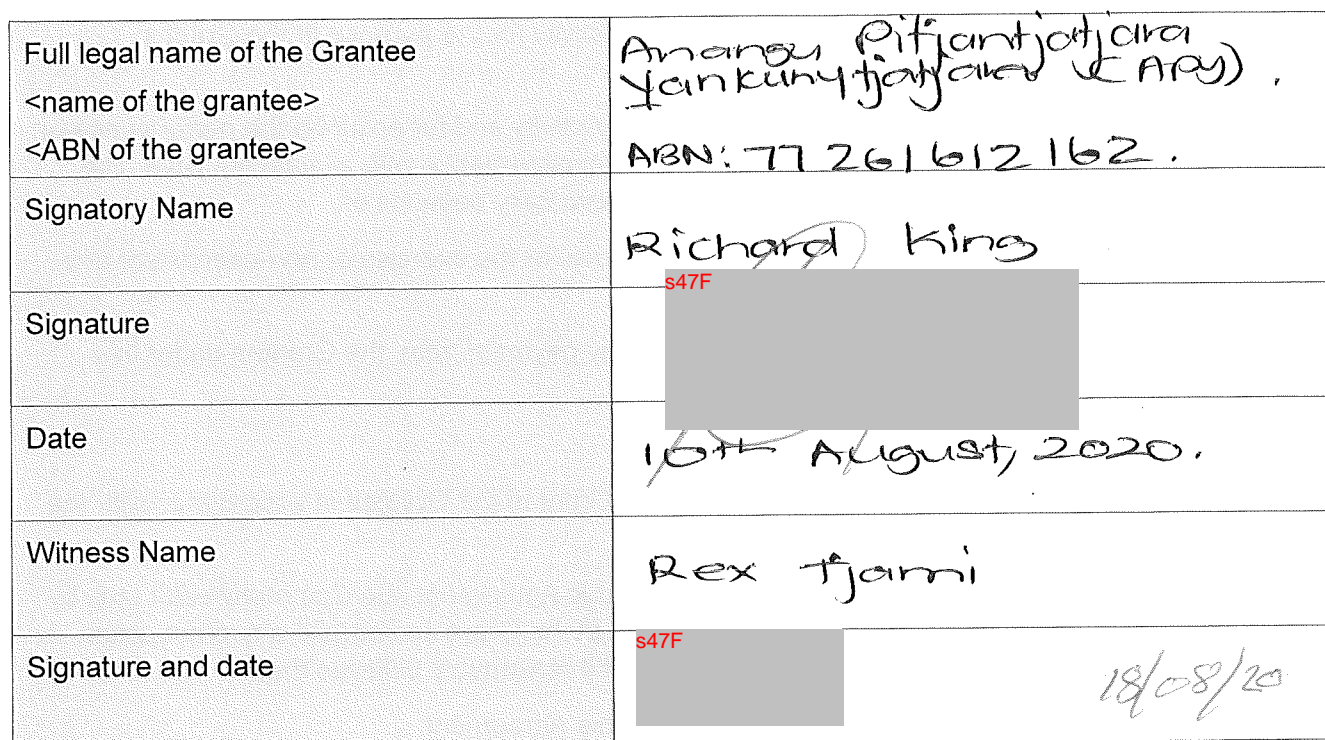 Full legal name of the Grantee
<name of the grantee>
<ABN of the grantee>
Anangu Pitjantjatjara
Yankunytjatjara (APY).
ABN: 77 261 612 162.
Signatory Name
Richard King
Signature
s47F
Date
10th August, 2020.
Witness Name
Rex Tjami
Signature and date
s47F
18/08/20